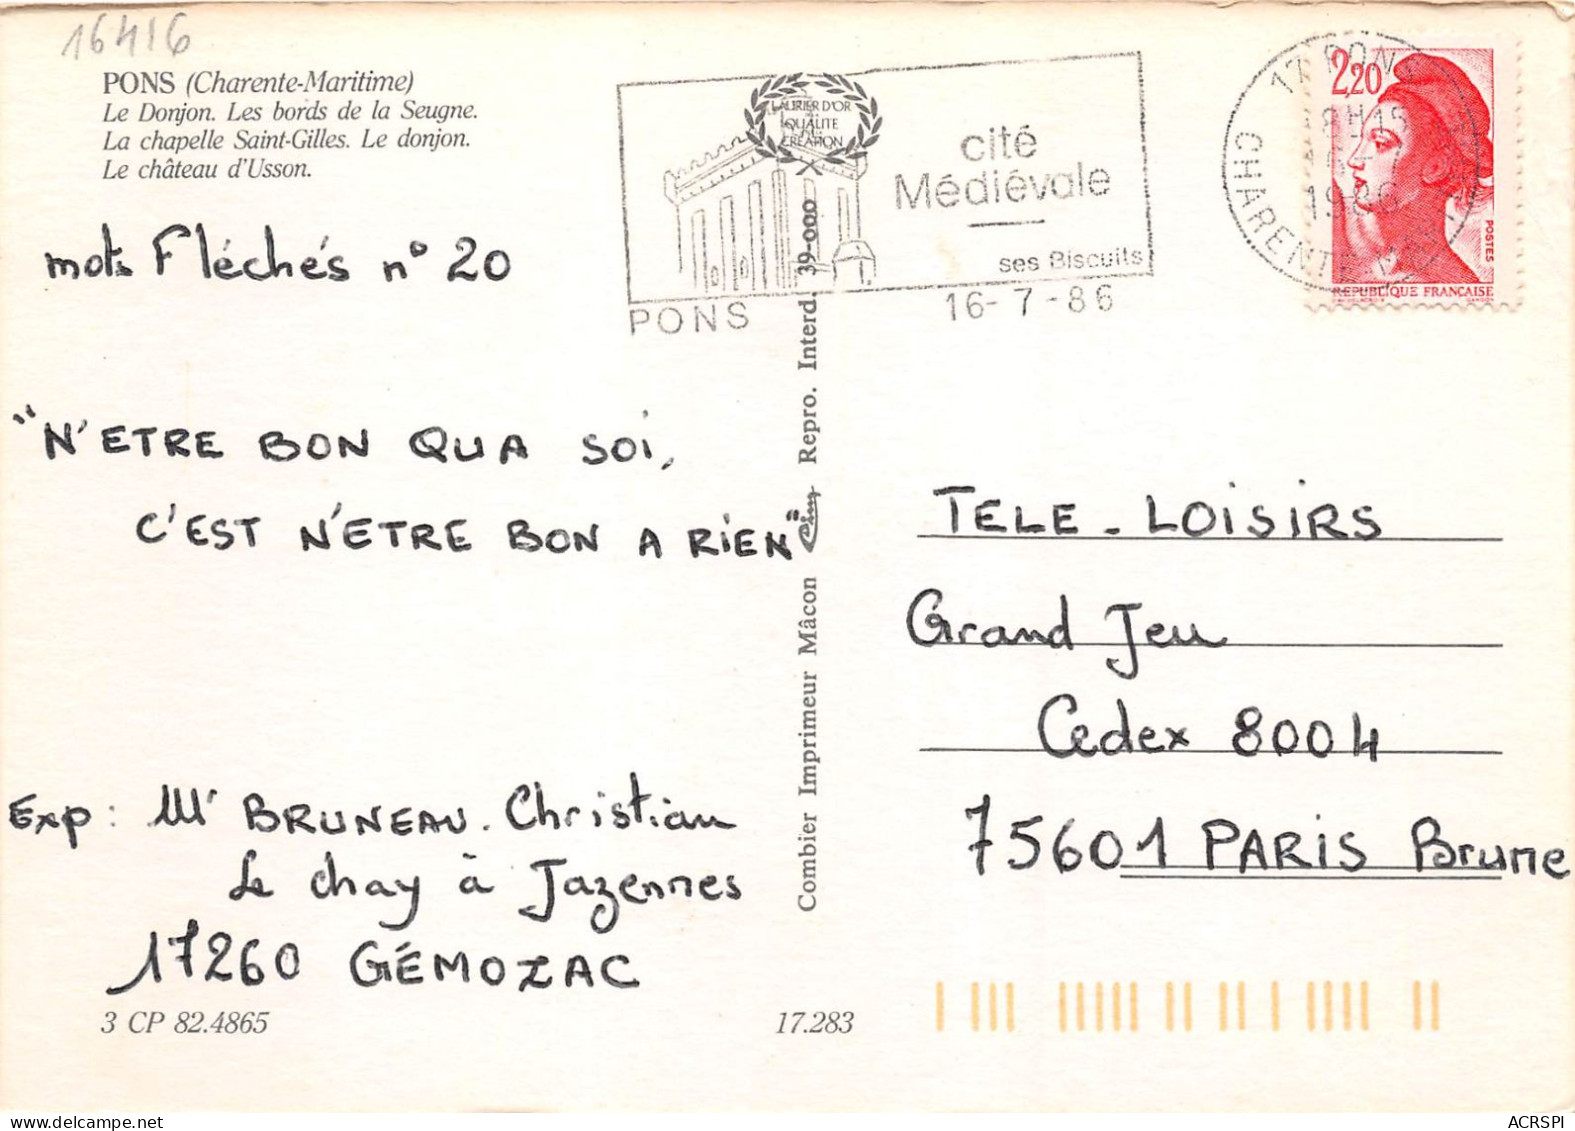 16416
PONS (Charente-Maritime)
Le Donjon. Les bords de la Seugne.
La chapelle Saint-Gilles. Le donjon.
Le château d'Usson.
mots Fléchés n° 20
"N'ETRE BON QUA SOI,
C'EST N'ETRE BON A RIEN"
Exp: Mr BRUNEAU. Christian
Le chay à Jazennes
17260 GÉMOZAC
3 CP 82.4865
17.283
LAURIER D'OR
QUALITE
CREATION
cité
Médiévale
ses Biscuits
PONS
16-7-86
Combier Imprimeur Mâcon Repro. Interd. 39-000
17 PONS
CHARENTE
1986
2,20
POSTES
REPUBLIQUE FRANÇAISE
TELE-LOISIRS
Grand Jeu
Cedex 8004
75601 PARIS Brune
ACRSPI